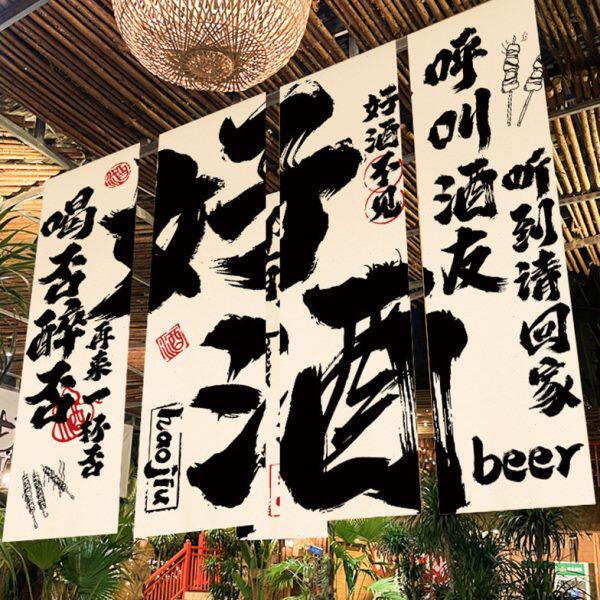 呼叫酒友
听到请回家
beer
好酒不见
好酒
haojiu
喝否醉否
再来一杯否
酒